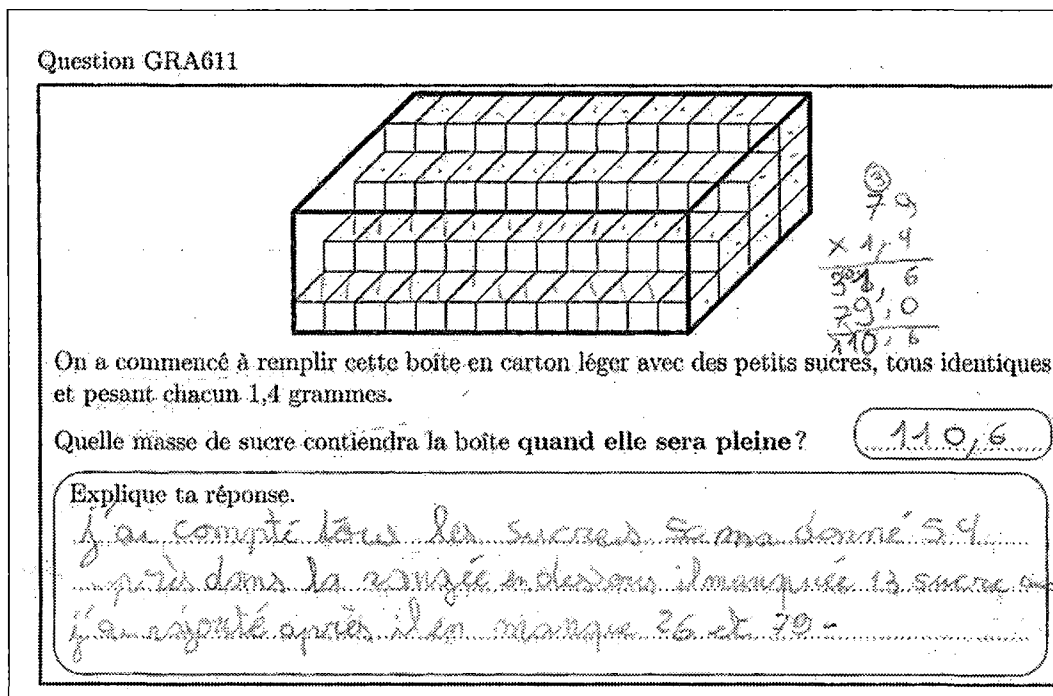 Question GRA611
③
79
× 1,4
31,6
79,0
110,6
On a commencé à remplir cette boîte en carton léger avec des petits sucres, tous identiques
et pesant chacun 1,4 grammes.
Quelle masse de sucre contiendra la boîte quand elle sera pleine ? 110,6
Explique ta réponse.
j'ai compté tous les sucres sa ma donné 54
près dans la rangée en dessous il manquée 13 sucre
j'ai rajouté après il en manque 26 et 79 -